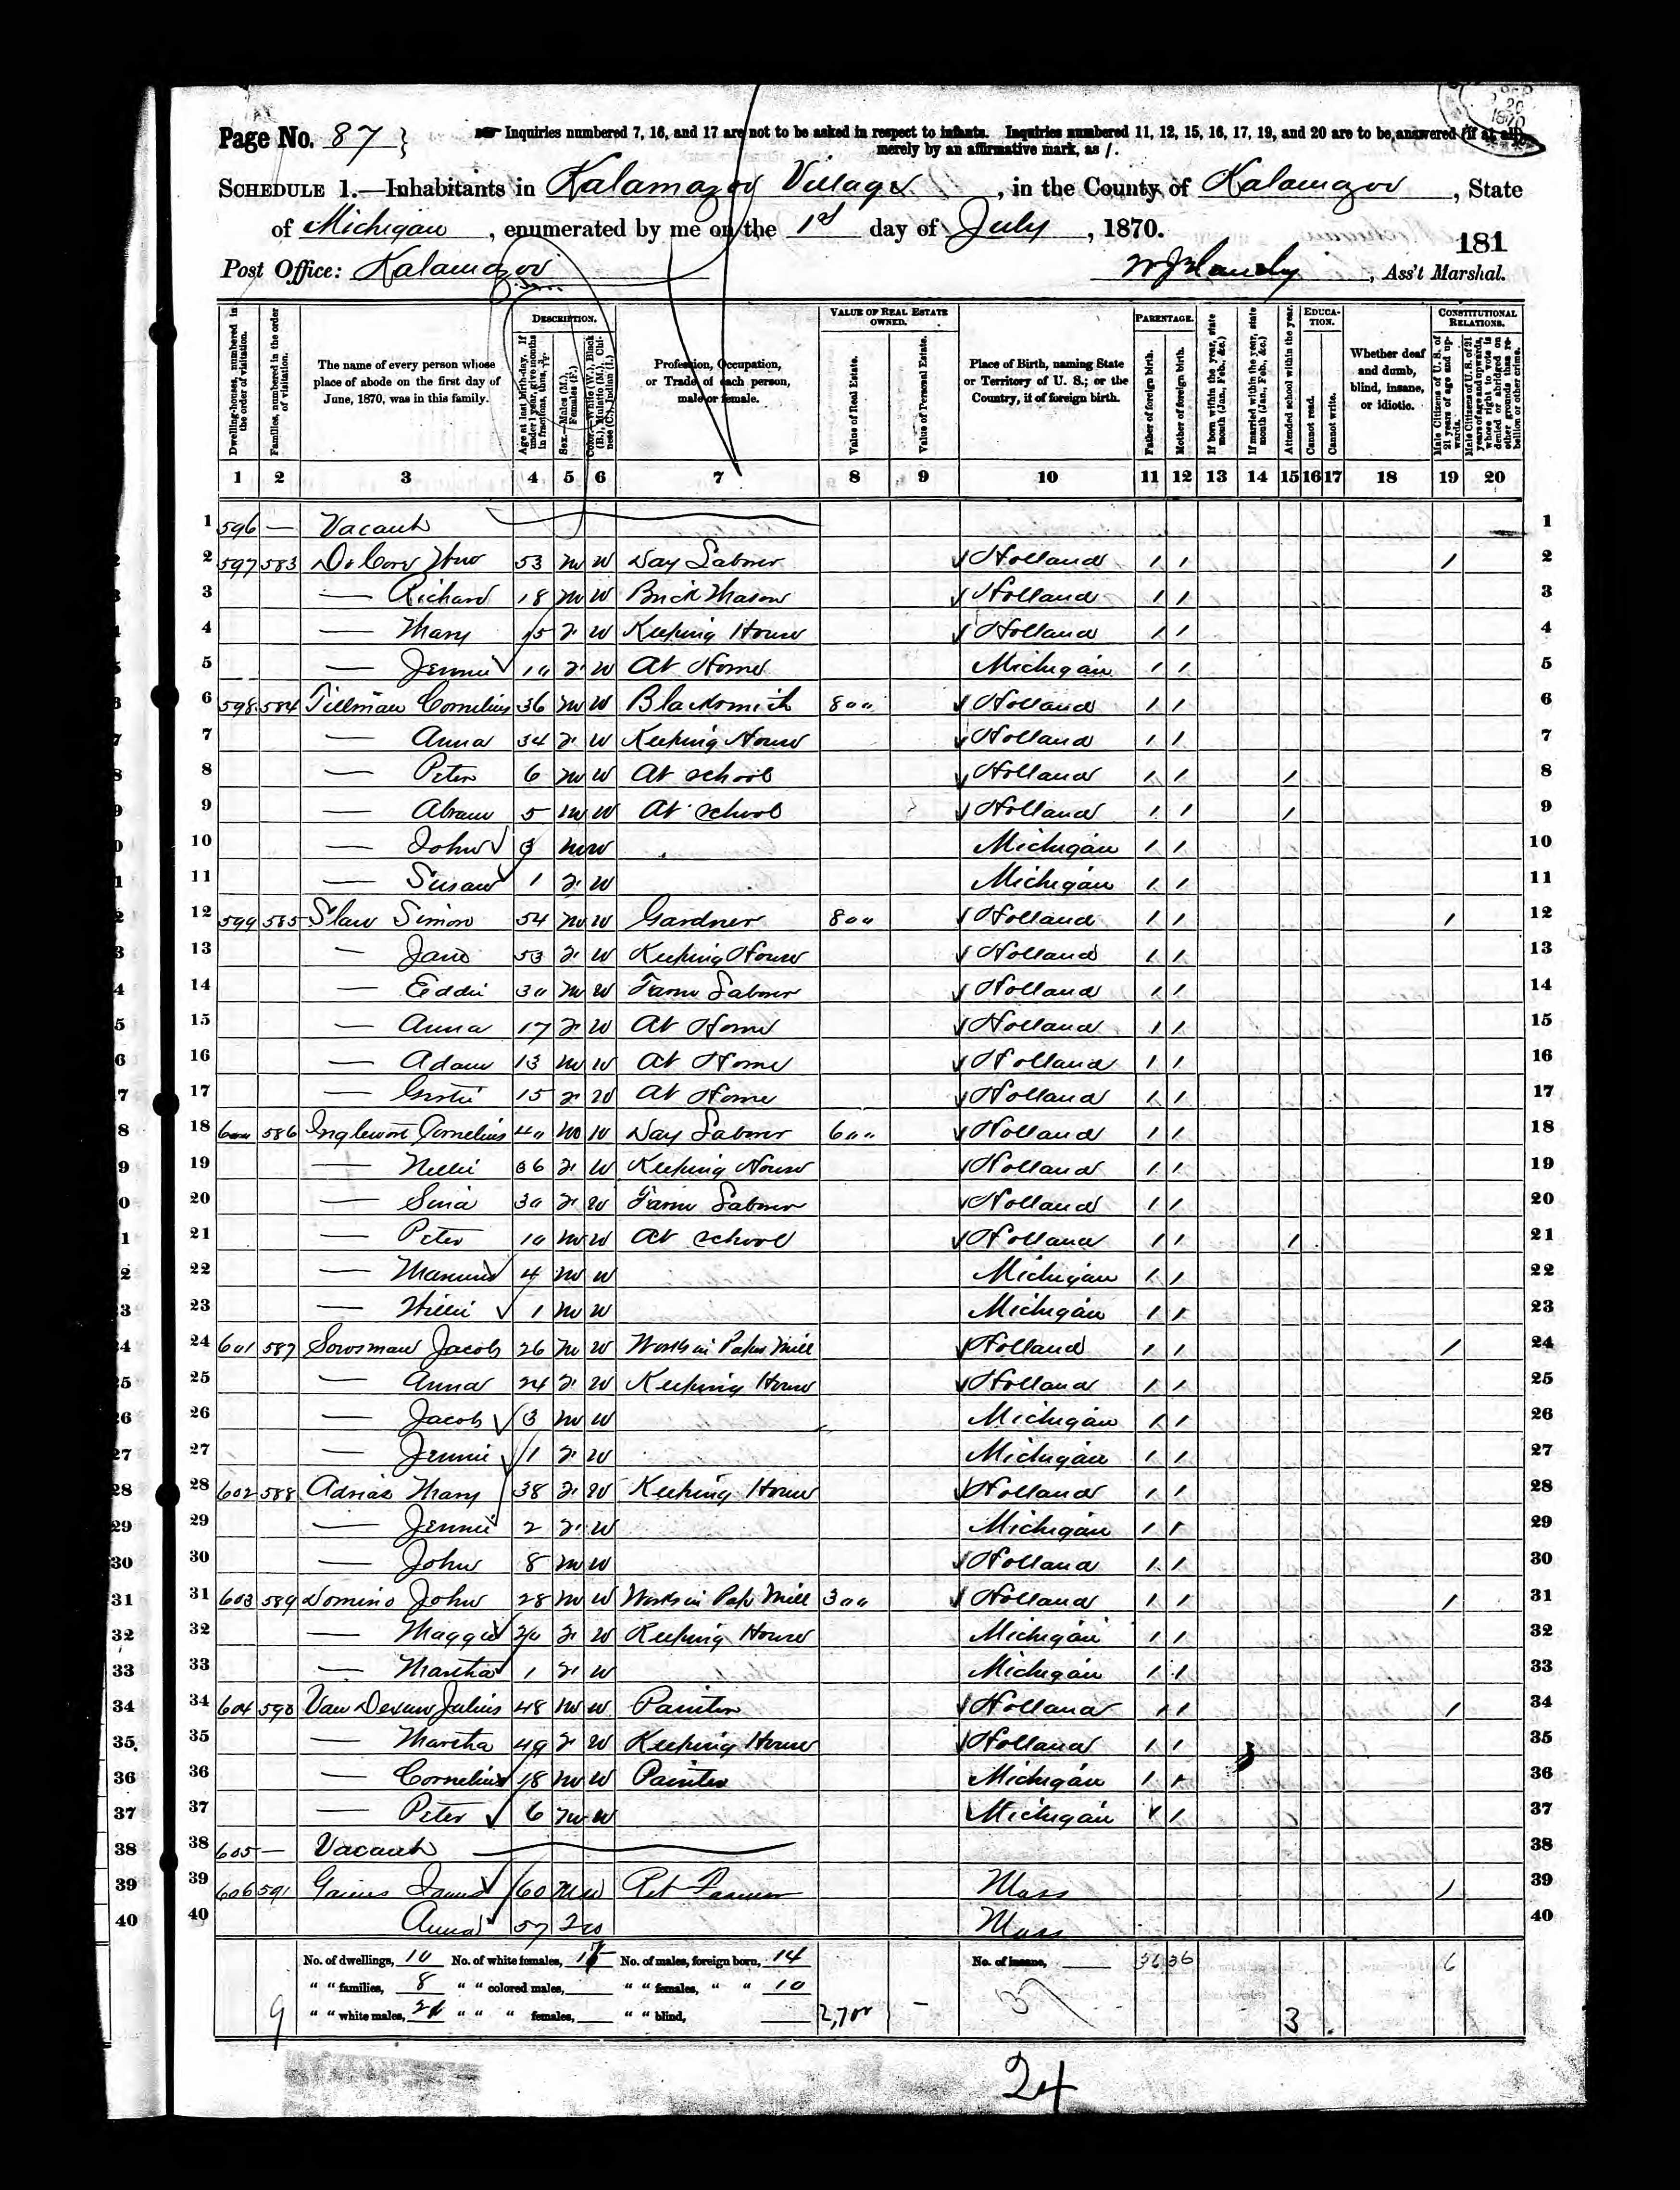 Page No. 87 } Inquiries numbered 7, 16, and 17 are not to be asked in respect to infants. Inquiries numbered 11, 12, 15, 16, 17, 19, and 20 are to be answered (if at all)
merely by an affirmative mark, as /.
SCHEDULE 1.—Inhabitants in Kalamazoo Village, in the County of Kalamazoo, State
of Michigan, enumerated by me on the 1st day of July, 1870.
181
Post Office: Kalamazoo , Ass't Marshal.
Dwelling-houses, numbered in the order of visitation.
Families, numbered in the order of visitation.
The name of every person whose place of abode on the first day of June, 1870, was in this family.
DESCRIPTION.
Age at last birth-day. If under 1 year, give months in fractions, thus,
Sex.—Males (M.), Females (F.)
Color.—White (W.), Black (B.), Mulatto (M.), Chinese (C.), Indian (I.)
Profession, Occupation, or Trade of each person, male or female.
VALUE OF REAL ESTATE OWNED.
Value of Real Estate.
Value of Personal Estate.
Place of Birth, naming State or Territory of U. S.; or the Country, if of foreign birth.
PARENTAGE.
Father of foreign birth.
Mother of foreign birth.
If born within the year, state month (Jan., Feb., &c.)
If married within the year, state month (Jan., Feb., &c.)
Attended school within the year.
EDUCATION.
Cannot read.
Cannot write.
Whether deaf and dumb, blind, insane, or idiotic.
CONSTITUTIONAL RELATIONS.
Male Citizens of U. S. of 21 years of age and upwards.
Male Citizens of U. S. of 21 years of age and upwards, whose right to vote is denied or abridged on other grounds than rebellion or other crime.
1 2 3 4 5 6 7 8 9 10 11 12 13 14 15 16 17 18 19 20
1 596 — Vacant 1
2 597 583 53 M W Day Laborer Holland / / / 2
3 — Richard 18 M W Brick Mason Holland / / 3
4 — Mary 15 F W Keeping House Holland / / 4
5 — Jennie 10 F W At Home Michigan / / 5
6 598 584 Tillman Cornelius 36 M W Blacksmith 800 Holland / / 6
7 — Anna 34 F W Keeping House Holland / / 7
8 — Peter 6 M W At school Holland / / / 8
9 — Abram 5 M W At school Holland / / / 9
10 — John 3 M W Michigan / / 10
11 — Susan 1 F W Michigan / / 11
12 599 585 Slaw Simon 54 M W Gardner 800 Holland / / / 12
13 — Jane 53 F W Keeping House Holland / / 13
14 — Eddie 30 M W Farm Laborer Holland / / 14
15 — Anna 17 F W At Home Holland / / 15
16 — Adam 13 M W At Home Holland / / 16
17 — 15 F W At Home Holland / / 17
18 600 586 Cornelius 40 M W Day Laborer 600 Holland / / 18
19 — Nellie 36 F W Keeping House Holland / / 19
20 — 30 F W Farm Laborer Holland / / 20
21 — Peter 10 M W At school Holland / / / 21
22 — 4 M W Michigan / / 22
23 — Willie 1 M W Michigan / / 23
24 601 587 Sowsman Jacob 26 M W Works in Paper Mill Holland / / / 24
25 — Anna 24 F W Keeping House Holland / / 25
26 — Jacob 3 M W Michigan / / 26
27 — Jennie 1 F W Michigan / / 27
28 602 588 Mary 38 F W Keeping House Holland / / 28
29 — Jennie 2 F W Michigan / / 29
30 — John 8 M W Holland / / 30
31 603 589 Domino John 28 M W Works in Pap Mill 300 Holland / / / 31
32 — Maggie 20 F W Keeping House Michigan / / 32
33 — Martha 1 F W Michigan / / 33
34 604 590 Julius 48 M W Painter Holland / / / 34
35 — Martha 49 F W Keeping House Holland / / 35
36 — Cornelius 18 M W Painter Michigan / / 36
37 — Peter 6 M W Michigan / / 37
38 605 — Vacant 38
39 606 591 James 60 M W Ret Farmer Mass / 39
40 Anna 57 F W Mass 40
No. of dwellings, 10 No. of white females, No. of males, foreign born, 14 No. of insane, 36 36 6
" " families, 8 " " colored males, " " females, " " 10
9 " " white males, " " " females, " " blind, 2,700 — 3
24